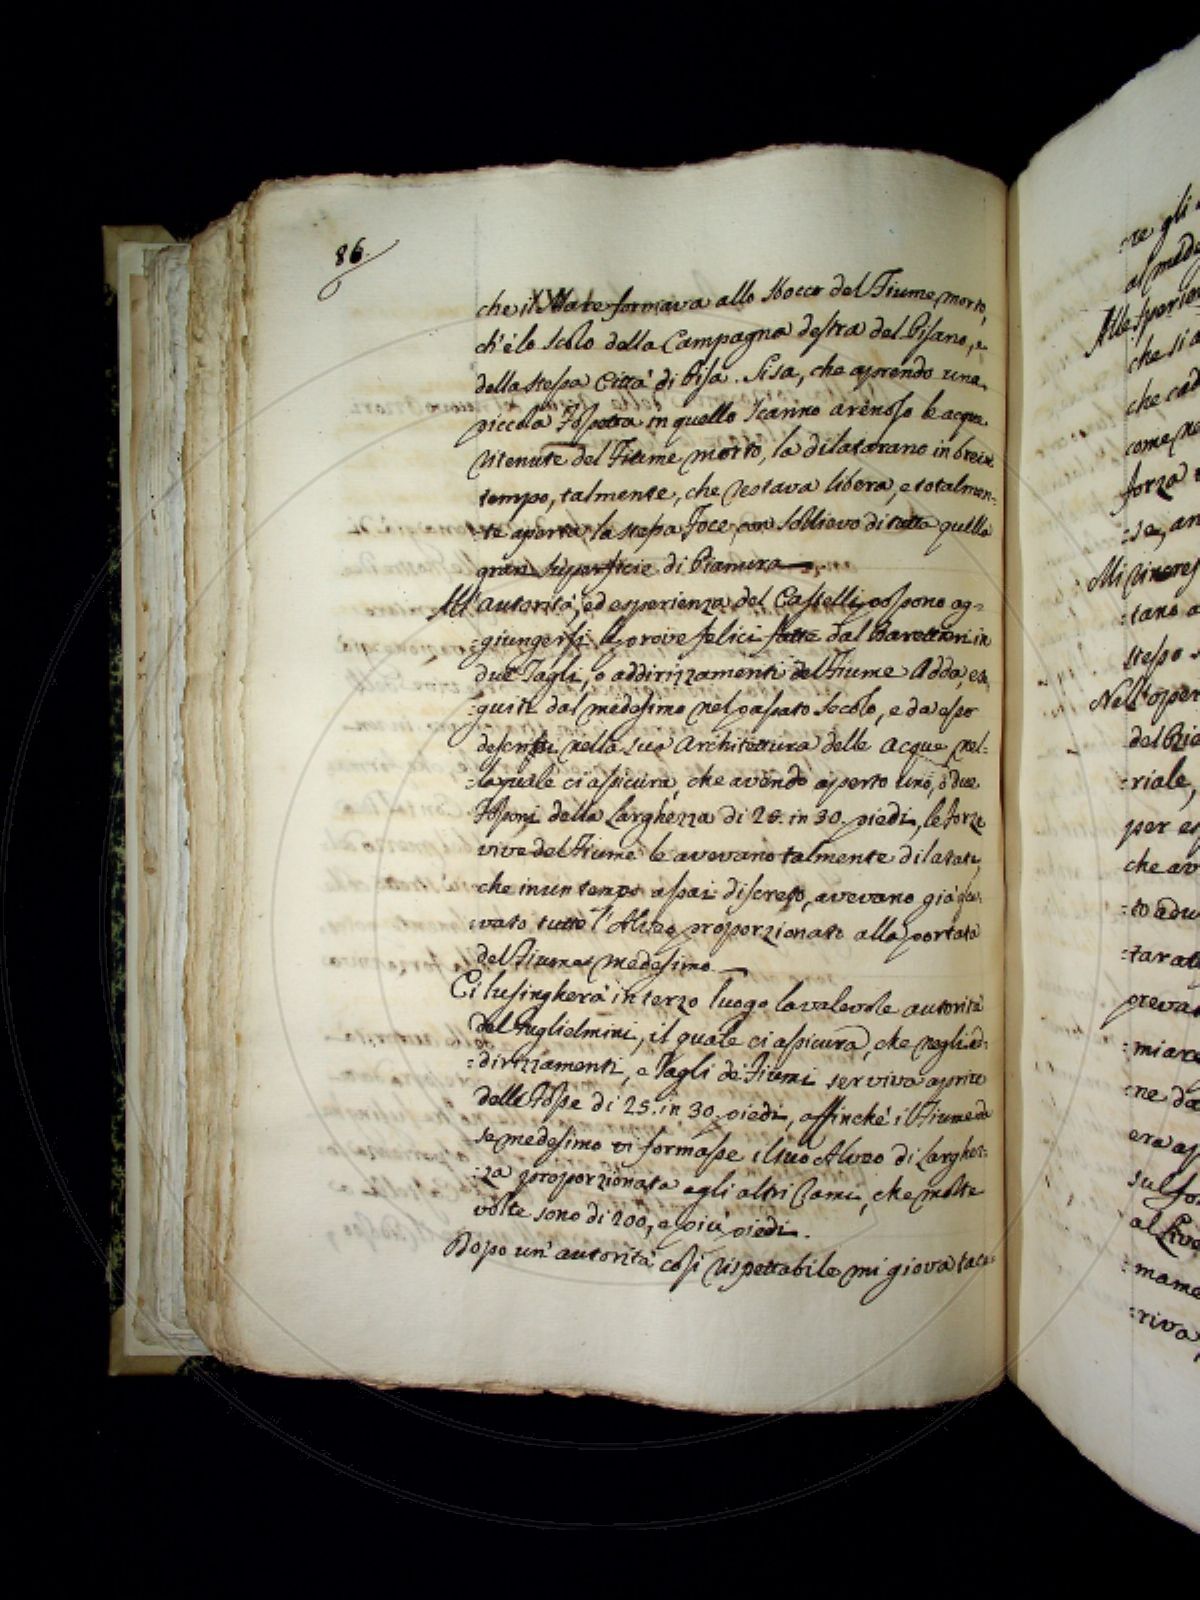 86.
che il Mare formava allo sbocco del Fiume morto,
ch'è lo scolo della Campagna destra del Pisano, e
della stessa Città di Pisa. Sisa, che aprendo una
piccola Fossetta in quello scanno arenoso le acque
ritenute del Fiume morto, la dilatavano in breve
tempo, talmente, che restava libera, e totalmen-
-te aperta la stessa Foce, con sollievo di tutta quella
gran superficie di Pianura.
All'autorità, ed esperienza del Castelli possono ag-
-giungersi le prove felici fatte dal Barattieri in
due Tagli, o addirizzamenti del Fiume Adda, ese-
-guiti dal medesimo nel passato secolo, e da esso
descritti nella sua Architettura delle Acque nel-
-la quale ci assicura, che avendo aperto uno, o due
Fossoni della larghezza di 25. in 30. piedi, le forze
vive del Fiume le avevano talmente dilatate,
che in un tempo assai discreto, avevano già sca-
vato tutto l'Alveo proporzionato alla portata
del Fiume medesimo.
Ci lusingherà in terzo luogo la valevole autorità
del Guglielmini, il quale ci assicura, che negli ad-
-dirizzamenti, e Tagli de' Fiumi serviva aprire
delle Fosse di 25. in 30. piedi, affinchè il Fiume da
se medesimo vi formasse il suo Alveo di larghez-
-za proporzionata agli altri rami, che molte
volte sono di 200, e più piedi.
Dopo un'autorità così rispettabile mi giova tace-
-re gli
al mede
Alle sperien
che si a
che cad
come ne
forza
-se, an
Mi rincres
-tano a
stesso
Nell'oper
del Brie
-riale,
per es
che av
-to adu
-tarat
preva
-miare
-ne da
era ap
sul fo
al Live
-mame
-riva,